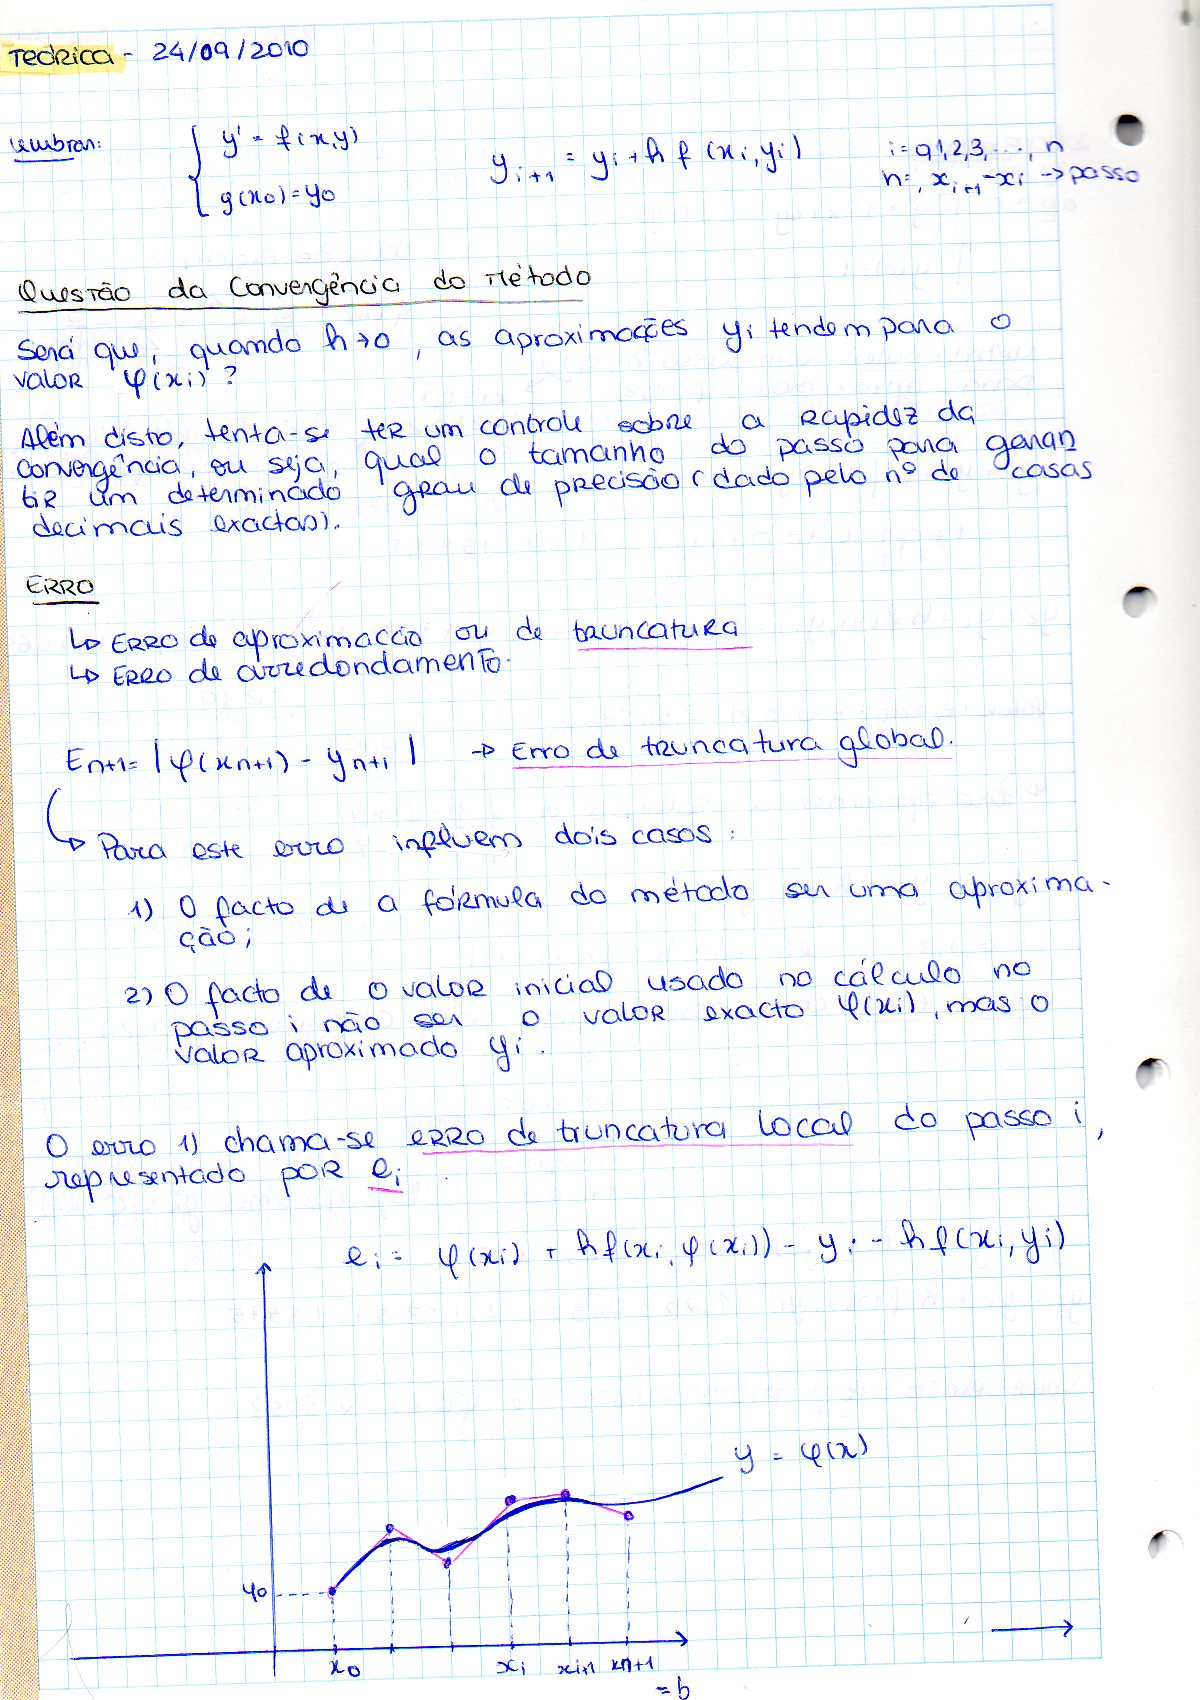 TEÓRICA - 24/09/2010
Lembrar: { y' = f(x,y) y_{i+1} = y_i + h f(x_i, y_i) i = 0,1,2,3,..., n
g(x_0) = y_0 h =, x_{i+1} - x_i → passo
Questão da Convergência do Método
Será que, quando h→0, as aproximações y_i tendem para o
valor φ(x_i)?
Além disto, tenta-se ter um controle sobre a rapidez da
convergência, ou seja, qual o tamanho do passo para garan
tir um determinado grau de precisão (dado pelo nº de casas
decimais exactas).
ERRO
↳ ERRO de aproximação ou de truncatura
↳ ERRO de arredondamento.
E_{n+1} = |φ(x_{n+1}) - y_{n+1}| → Erro de truncatura global.
↳ Para este erro influem dois casos:
1) O facto de a fórmula do método ser uma aproxima-
ção;
2) O facto de o valor inicial usado no cálculo no
passo i não ser o valor exacto φ(x_i), mas o
valor aproximado y_i.
O erro 1) chama-se ERRO de truncatura local do passo i,
representado por e_i
e_i = φ(x_i) + hf(x_i, φ(x_i)) - y_i - hf(x_i, y_i)
y = φ(x)
y_0
x_0 x_i x_{i+1} x_{n+1}
= b